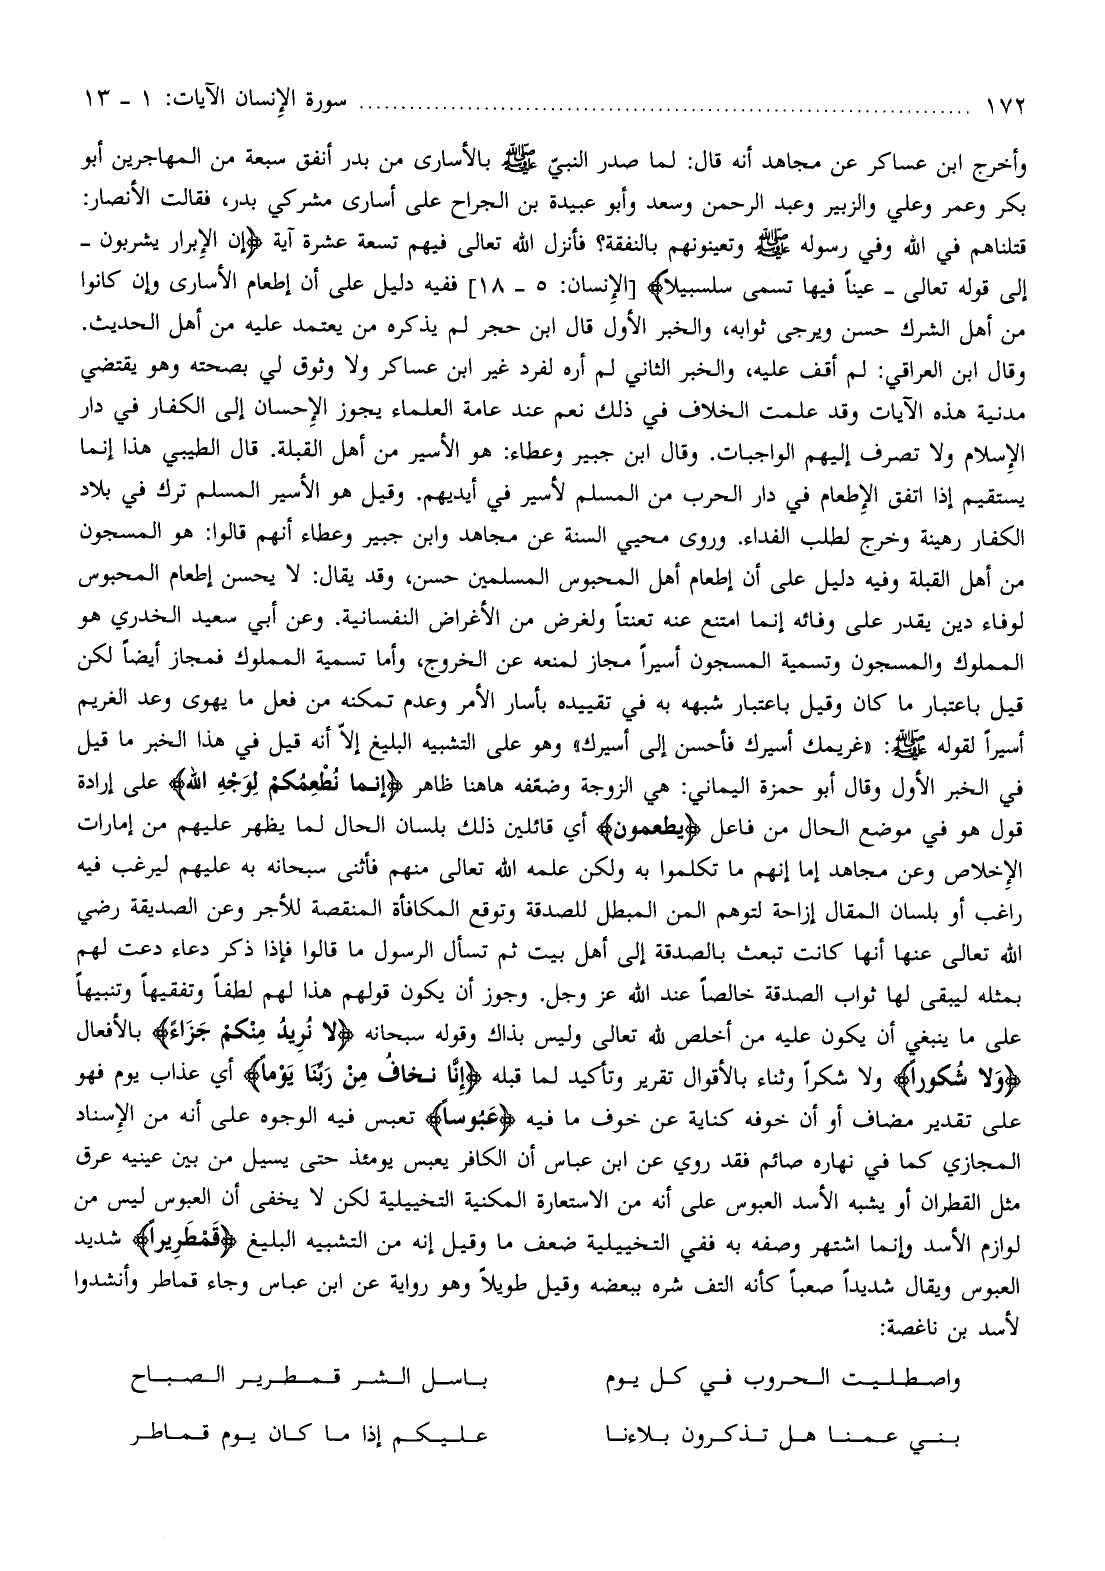 ١٧٢ ........................................................................ سورة الإنسان الآيات: ١ - ١٣
وأخرج ابن عساكر عن مجاهد أنه قال: لما صدر النبيّ ﷺ بالأسارى من بدر أنفق سبعة من المهاجرين أبو
بكر وعمر وعلي والزبير وعبد الرحمن وسعد وأبو عبيدة بن الجراح على أسارى مشركي بدر، فقالت الأنصار:
قتلناهم في الله وفي رسوله ﷺ وتعينونهم بالنفقة؟ فأنزل الله تعالى فيهم تسعة عشرة آية ﴿إن الإبرار يشربون ـ
إلى قوله تعالى ـ عيناً فيها تسمى سلسبيلا﴾ [الإنسان: ٥ - ١٨] ففيه دليل على أن إطعام الأسارى وإن كانوا
من أهل الشرك حسن ويرجى ثوابه، والخبر الأول قال ابن حجر لم يذكره من يعتمد عليه من أهل الحديث.
وقال ابن العراقي: لم أقف عليه، والخبر الثاني لم أره لفرد غير ابن عساكر ولا وثوق لي بصحته وهو يقتضي
مدنية هذه الآيات وقد علمت الخلاف في ذلك نعم عند عامة العلماء يجوز الإحسان إلى الكفار في دار
الإسلام ولا تصرف إليهم الواجبات. وقال ابن جبير وعطاء: هو الأسير من أهل القبلة. قال الطيبي هذا إنما
يستقيم إذا اتفق الإطعام في دار الحرب من المسلم لأسير في أيديهم. وقيل هو الأسير المسلم ترك في بلاد
الكفار رهينة وخرج لطلب الفداء. وروى محيي السنة عن مجاهد وابن جبير وعطاء أنهم قالوا: هو المسجون
من أهل القبلة وفيه دليل على أن إطعام أهل المحبوس المسلمين حسن، وقد يقال: لا يحسن إطعام المحبوس
لوفاء دين يقدر على وفائه إنما امتنع عنه تعنتاً ولغرض من الأغراض النفسانية. وعن أبي سعيد الخدري هو
المملوك والمسجون وتسمية المسجون أسيراً مجاز لمنعه عن الخروج، وأما تسمية المملوك فمجاز أيضاً لكن
قيل باعتبار ما كان وقيل باعتبار شبهه به في تقييده بأسار الأمر وعدم تمكنه من فعل ما يهوى وعد الغريم
أسيراً لقوله ﷺ: «غريمك أسيرك فأحسن إلى أسيرك» وهو على التشبيه البليغ إلاّ أنه قيل في هذا الخبر ما قيل
في الخبر الأول وقال أبو حمزة اليماني: هي الزوجة وضعّفه هاهنا ظاهر ﴿إنما نُطْعِمُكمْ لِوَجْهِ الله﴾ على إرادة
قول هو في موضع الحال من فاعل ﴿يطعمون﴾ أي قائلين ذلك بلسان الحال لما يظهر عليهم من إمارات
الإخلاص وعن مجاهد إما إنهم ما تكلموا به ولكن علمه الله تعالى منهم فأثنى سبحانه به عليهم ليرغب فيه
راغب أو بلسان المقال إزاحة لتوهم المن المبطل للصدقة وتوقع المكافأة المنقصة للأجر وعن الصديقة رضي
الله تعالى عنها أنها كانت تبعث بالصدقة إلى أهل بيت ثم تسأل الرسول ما قالوا فإذا ذكر دعاء دعت لهم
بمثله ليبقى لها ثواب الصدقة خالصاً عند الله عز وجل. وجوز أن يكون قولهم هذا لهم لطفاً وتفقيهاً وتنبيهاً
على ما ينبغي أن يكون عليه من أخلص لله تعالى وليس بذاك وقوله سبحانه ﴿لا نُرِيدُ مِنْكمْ جَزَاءً﴾ بالأفعال
﴿وَلا شُكوراً﴾ ولا شكراً وثناء بالأقوال تقرير وتأكيد لما قبله ﴿إِنَّا نخافُ مِنْ رَبِّنَا يَوْماً﴾ أي عذاب يوم فهو
على تقدير مضاف أو أن خوفه كناية عن خوف ما فيه ﴿عَبُوساً﴾ تعبس فيه الوجوه على أنه من الإسناد
المجازي كما في نهاره صائم فقد روي عن ابن عباس أن الكافر يعبس يومئذ حتى يسيل من بين عينيه عرق
مثل القطران أو يشبه الأسد العبوس على أنه من الاستعارة المكنية التخييلية لكن لا يخفى أن العبوس ليس من
لوازم الأسد وإنما اشتهر وصفه به ففي التخييلية ضعف ما وقيل إنه من التشبيه البليغ ﴿قَمْطَرِيراً﴾ شديد
العبوس ويقال شديداً صعباً كأنه التف شره ببعضه وقيل طويلاً وهو رواية عن ابن عباس وجاء قماطر وأنشدوا
لأسد بن ناغصة:
واصطليت الحروب في كل يوم باسل الشر قمطرير الصباح
بني عمنا هل تذكرون بلاءنا عليكم إذا ما كان يوم قماطر